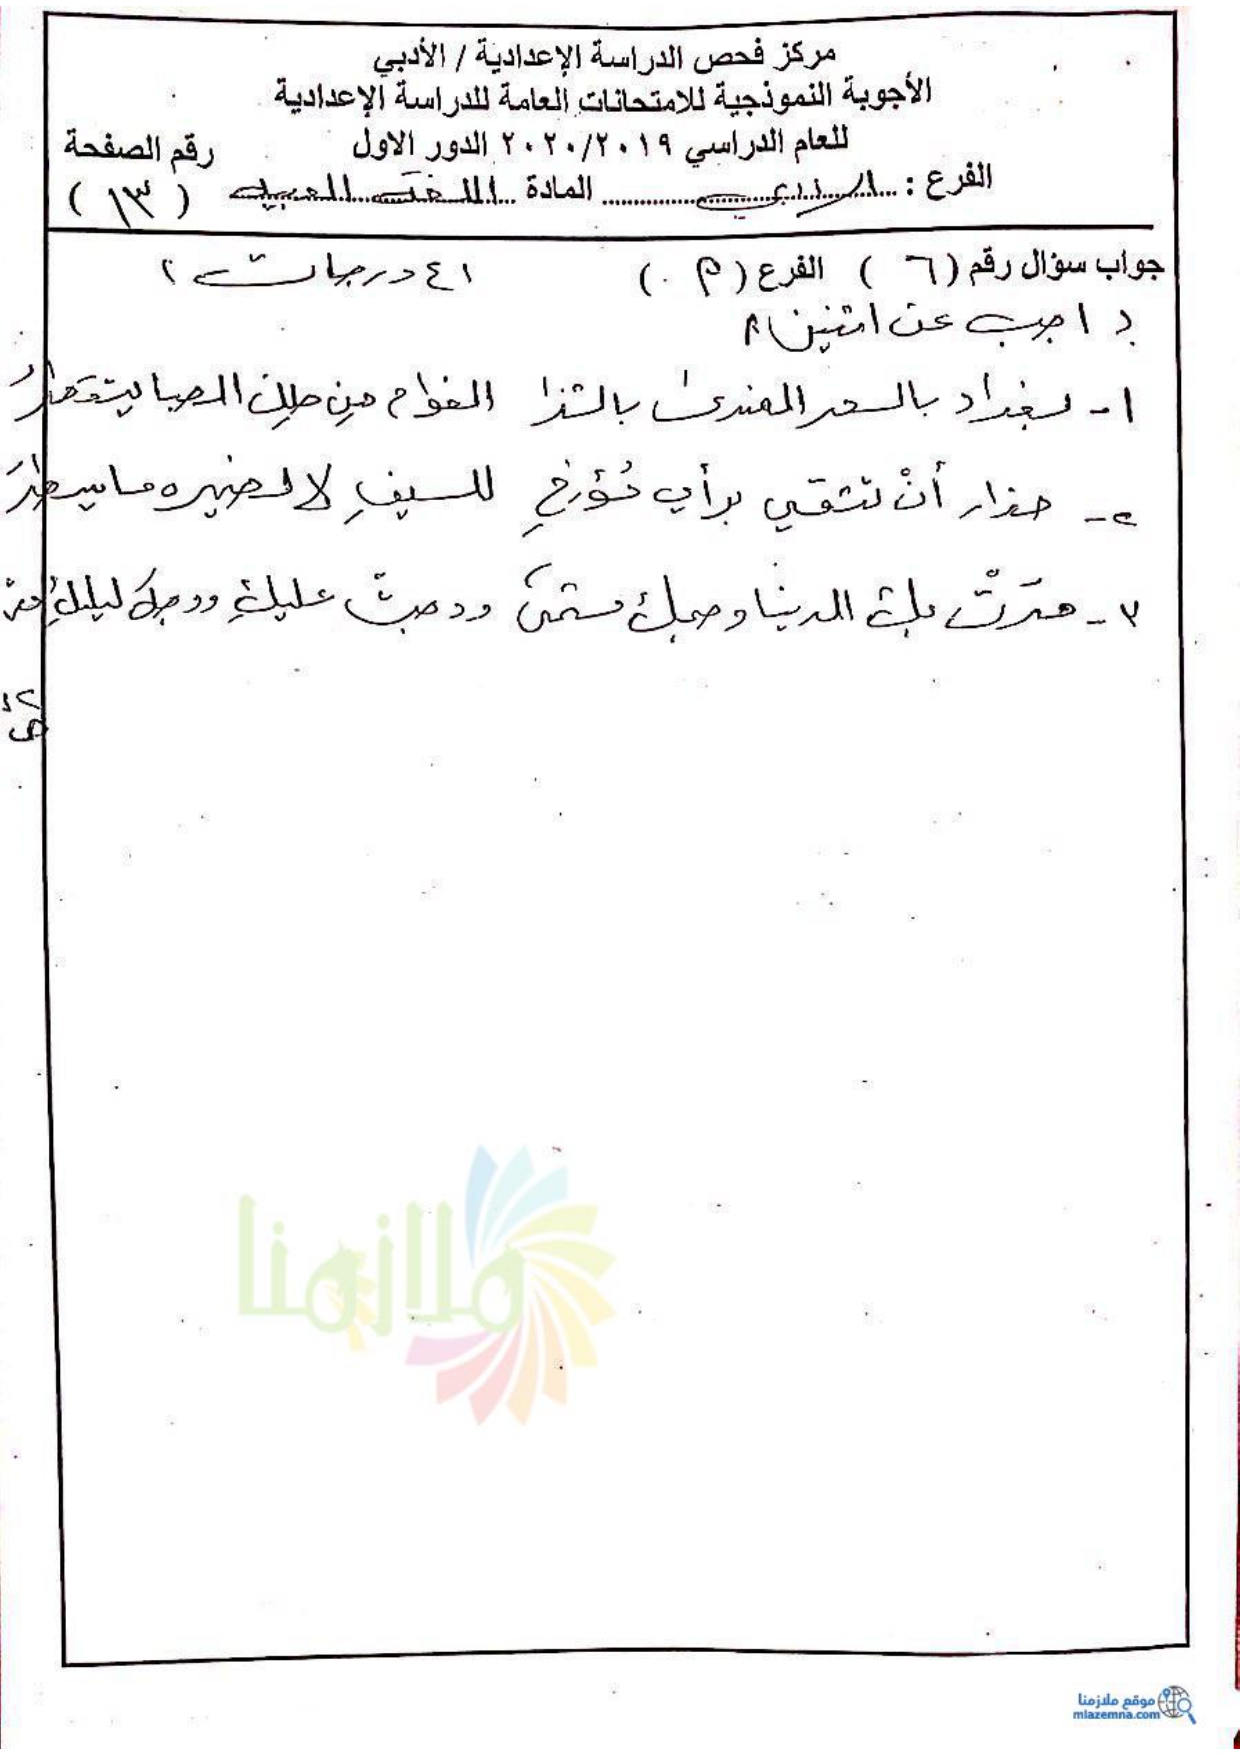 مركز فحص الدراسة الإعدادية / الأدبي
الأجوبة النموذجية للامتحانات العامة للدراسة الإعدادية
للعام الدراسي ٢٠٢٠/٢٠١٩ الدور الاول
رقم الصفحة
الفرع : الادبي المادة اللغة العربية ( ١٣ )
جواب سؤال رقم ( ٦ ) الفرع ( م ) ( ٤ درجات )
( اجب عن اثنين )
١- بغداد بالسحر المندى بالشذا الفواح من حلل الصبا يتقطر
٢- حذار أنْ تثقي برأي مُؤرخٍ للسيفِ لا لضميره ما يسطرُ
٣- مرّتْ بكِ الدنيا وصبحكِ مشمسٌ ودجتْ عليكِ ووجهُ ليلكِ
ملازمنا
موقع ملازمنا
mlazemna.com